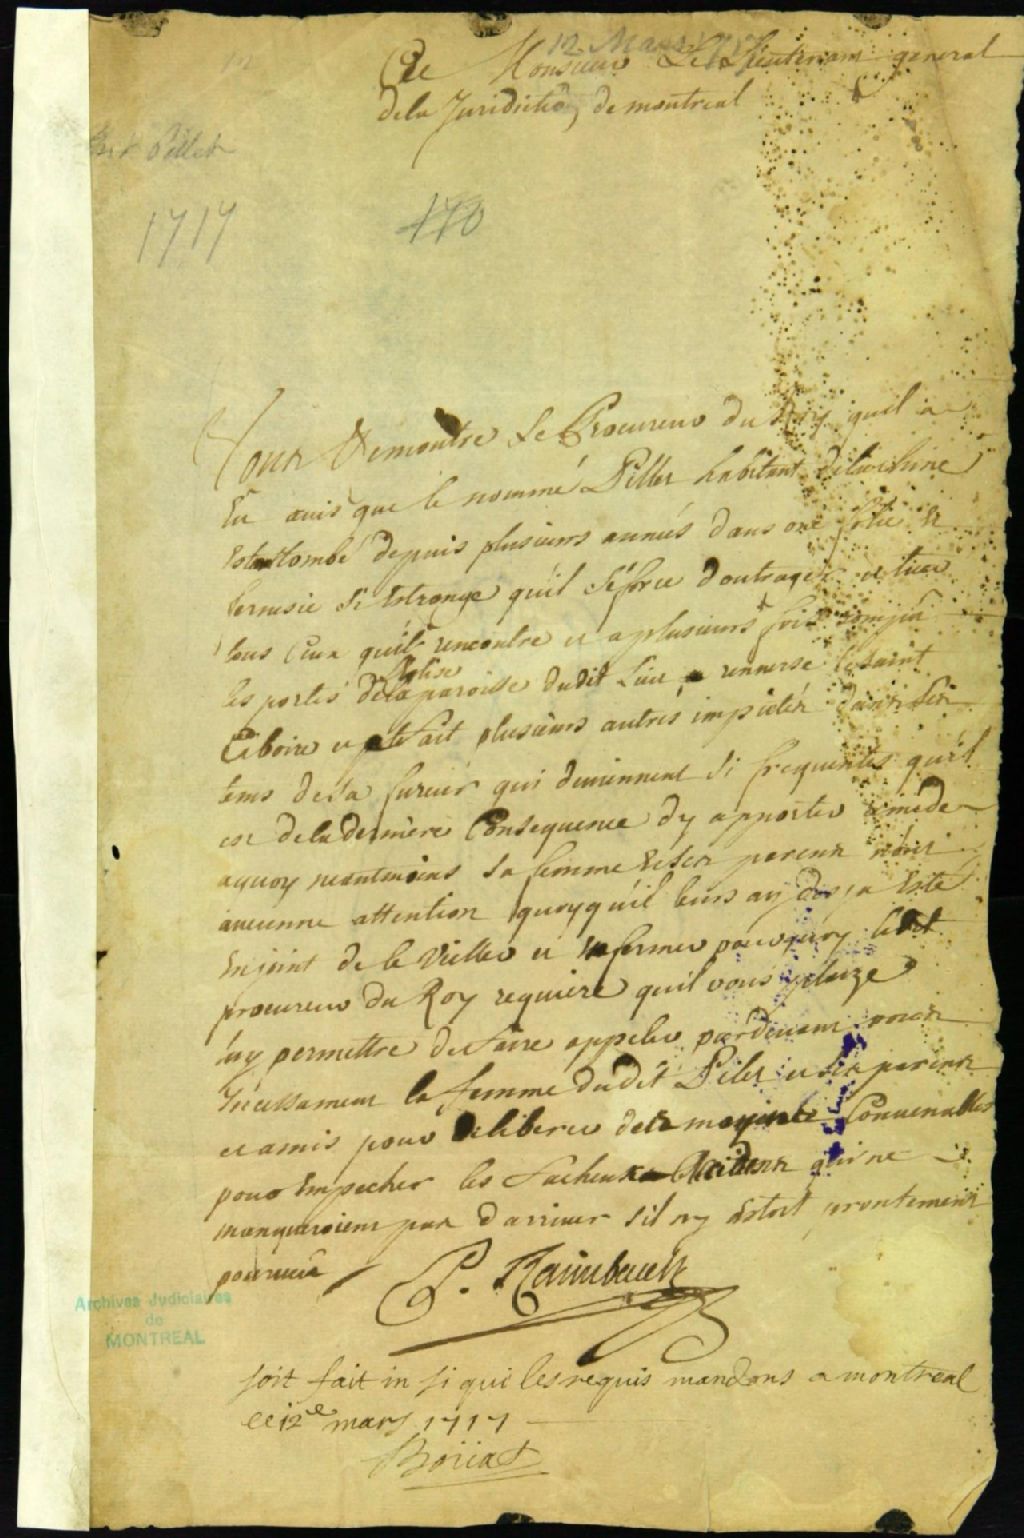 12 Mars 1717
Monsieur Le Lieutenant general
de la Juridiction de montreal
Pillet
1717
170
Vous Remontre Le Procureur du Roy quil a
Eu avis que le nommé Pillet habitant delachine
Est tombé depuis plusieurs années dans une folie Et
frenesie si Estrange qu'il s'éforce doutrager et tuer
tous Ceux quil rencontre et a plusieurs fois rompû
les portes de la paroisse dudit Lieu renverse le saint
Eglise
Ciboire et fait plusieurs autres impietés dans les
tems de sa fureur qui deviennent si frequentes qu'il
est de la derniere Consequence d'y apporter remede
aquoy neantmoins sa femme Et ses parens n'ont
aucunne attention quoyqu'il leurs ay desja Esté
Enjoint de le Veiller et Enfermer pourquoy ledit
procureur du Roy requiere qu'il vous plaize
luy permettre de faire appeler pardevant vous
Incessament la femme dudit Pilet et ses parens
et amis pour deliberer des moyens Convenables
pour Empecher les facheux accidens qui ne
manqueroient pas d'arriver s'il ny Estoit prontement
pourveu
P. Raimbault
Archives Judiciaires
de
MONTREAL
soit fait in si que les requis mandons a montreal
ce 12e mars 1717